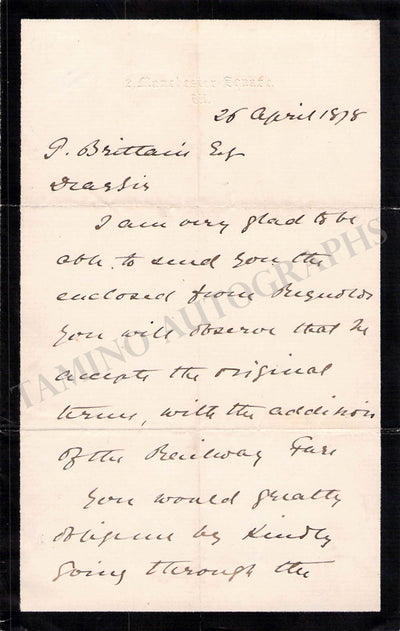 2, Manchester Square.
W.
26 April 1878
P. Brittain Esq
Dear Sir
I am very glad to be
able to send you the
enclosed from Reynolds
You will observe that he
accepts the original
terms, with the addition
of the Railway Fare
You would greatly
oblige me by kindly
going through the
TAMINO AUTOGRAPHS